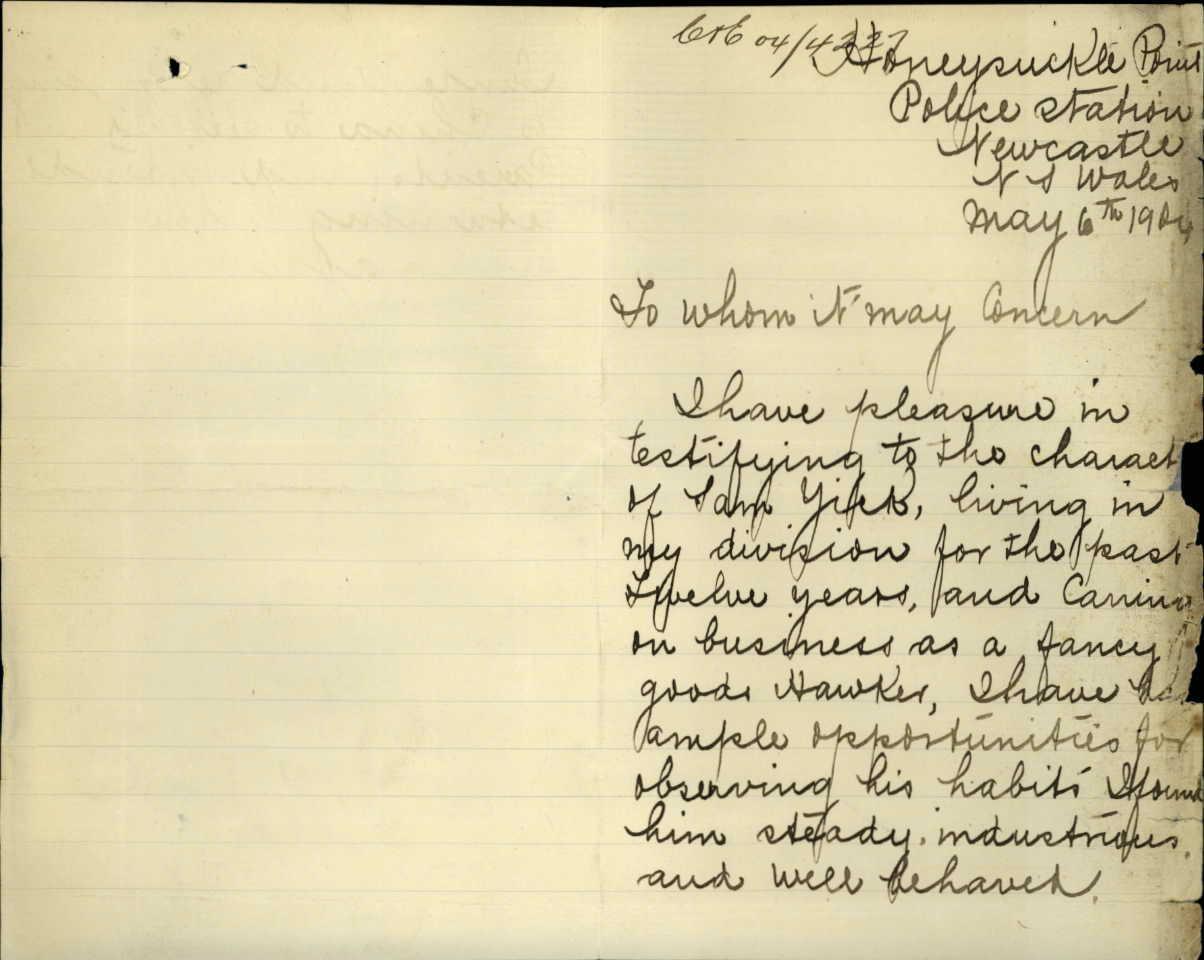 C&E 04/4337
Honeysuckle Point
Police station
Newcastle
N S Wales
May 6th 1904
To whom it may Concern
I have pleasure in
testifying to the charact
of Sam Yick, living in
my division for the past
Twelve years, and Carrin
on business as a fancy
goods Hawker, I have
ample opportunities for
observing his habits I found
him steady. industrious.
and well behaved.